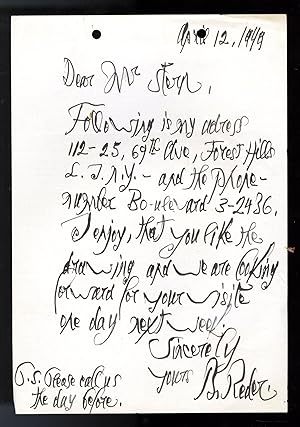 April 12, 1949
Dear Mr Stern,
Following is my adress
112-25, 69th Ave, Forest Hills
L. I. N.Y. - and the phone-
number Bo-ulevard 3-2436.
I enjoy, that you like the
drawing and we are looking
forward for your visite
one day next week.
Sincerely
yours B. Reder.
P.S. Please call us
the day before.